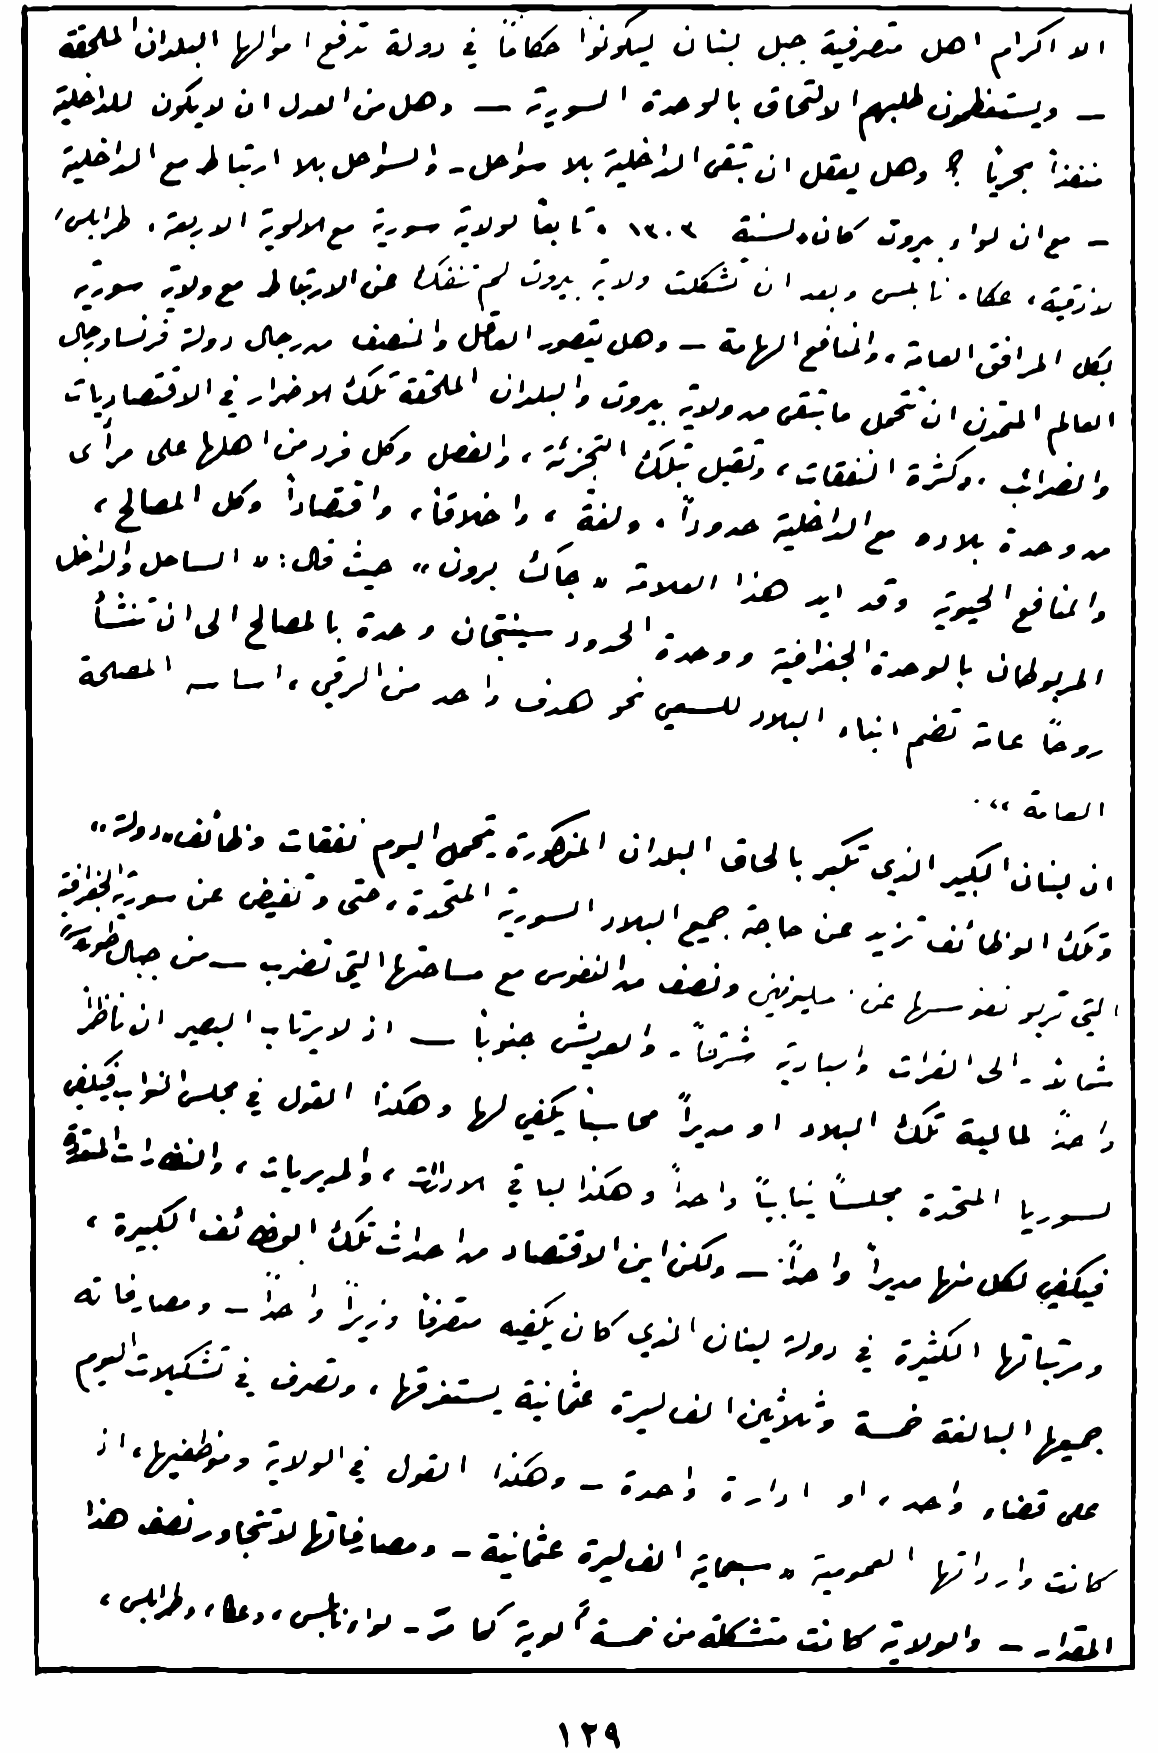 الا اكرام اهل متصرفية جبل لبنان ليكونوا حكاماً في دولة تدفع اموالها البلدان الملحقة
– ويستعظمون طلبهم الالتحاق بالوحدة السورية – وهل من العدل ان لا يكون للداخلية
منفذاً بحرياً ؟ وهل يعقل ان تبقى الداخلية بلا سواحل - والسواحل بلا ارتباط مع الداخلية
– مع ان لواء بيروت كان لسنة ١٣٠٣ تابعاً لولاية سورية مع الالوية الاربعة ، طرابلس ،
لاذقية ، عكا ، نابلس وبعد ان تشكلت ولاية بيروت لم تنفك عن الارتباط مع ولاية سورية
بكل المرافق العامة ، والمنافع الهامة – وهل يتصور العقل والمنصف من رجال دولة فرنسا ورجال
العالم المتمدن ان تتحمل ما تبقى من ولاية بيروت والبلدان الملحقة تلك الاضرار في الاقتصاديات
والضرائب ، وكثرة النفقات ، وتقبل بتلك التجزئة ، والفصل وكل فرد من اهلها على مرأى
من وحدة بلاده مع الداخلية حدوداً ، ولغة ، واخلاقاً ، واقتصاداً وكل المصالح ،
والمنافع الحيوية وقد ايد هذا العلامة « جاك برون » حيث قال : « الساحل والداخل
المربوطان بالوحدة الجغرافية ووحدة الحدود سينتجان وحدة بالمصالح الى ان تنشأ
روحاً عامة تضم ابناء البلاد للسعي نحو هدف واحد من الرقي ، اساسه المصلحة
العامة » .
ان لبنان الكبير الذي تكبر بالحاق البلدان المذكورة يتحمل اليوم نفقات وظائف « دولة »
وتلك الوظائف تزيد عن حاجة جميع البلاد السورية المتحدة ، حتى وتفيض عن سورية الجغرافية
التي تربو نفوسها عن مليونين ونصف من النفوس مع مساحتها التي تضرب – من جبال طوروس
شمالاً - الى الفرات والبادية شرقاً - والعريش جنوباً – اذ لا يرتاب البصير ان ناظراً
واحداً لمالية تلك البلاد او مديراً محاسباً يكفي لها وهكذا القول في مجلس النواب فيكفي
لسوريا المتحدة مجلساً نيابياً واحداً وهكذا لباقي الادارات ، والمديريات ، والنظارات المتعددة
فيكفي لكل منها مديراً واحداً – ولكن اين الاقتصاد من احداث تلك الوظائف الكبيرة ،
ومرتباتها الكثيرة في دولة لبنان الذي كان يكفيه متصرفاً وزيراً واحداً – ومصارفاته
جميعها البالغة خمسة وثلاثين الف ليرة عثمانية يستغرقها ، وتصرف في تشكيلات اليوم
على قضاء واحد ، او ادارة واحدة – وهكذا القول في الولاية وموظفيها ، اذ
كانت وارداتها العمومية « سبعماية الف ليرة عثمانية – ومصارفاتها لا تتجاوز نصف هذا
المقدار – والولاية كانت متشكلة من خمسة الوية كما مرّ - لواء نابلس ، وعكا ، وطرابلس ،
١٢٩